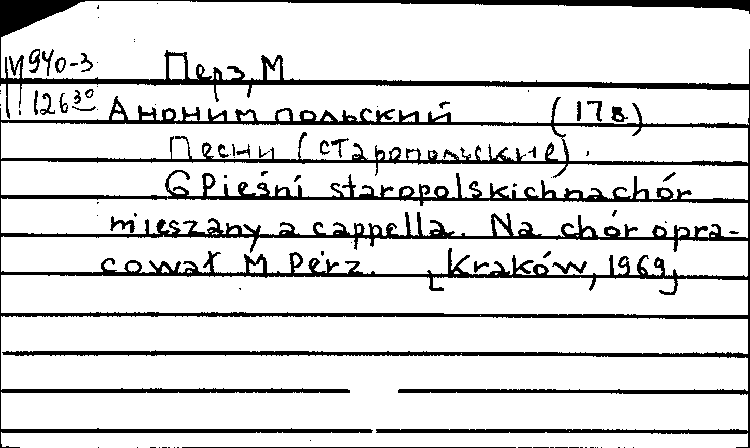 М940-3 Перз, М
1263º Аноним польский (17в.)
Песни (старопольские).
6 Pieśni staropolskich na chór
mieszany a cappella. Na chór opra-
cował M. Perz. [Kraków, 1969]